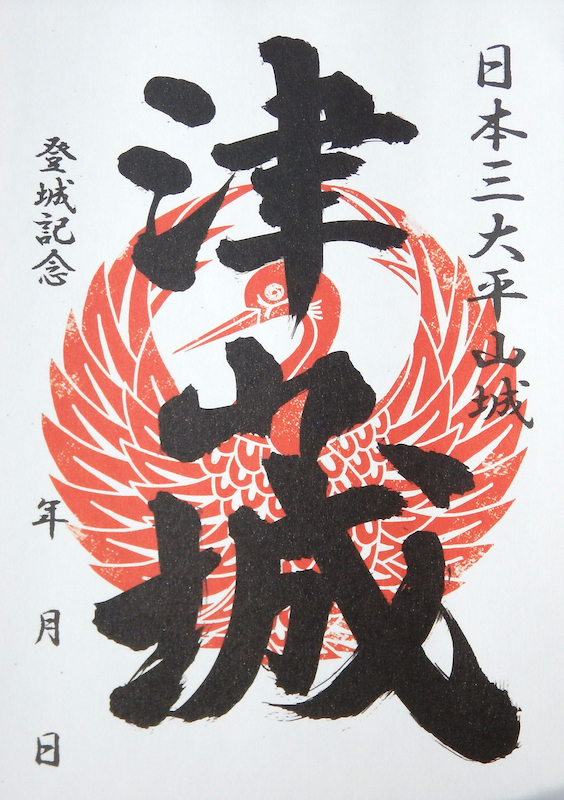 日本三大平山城
津山城
登城記念
年 月 日